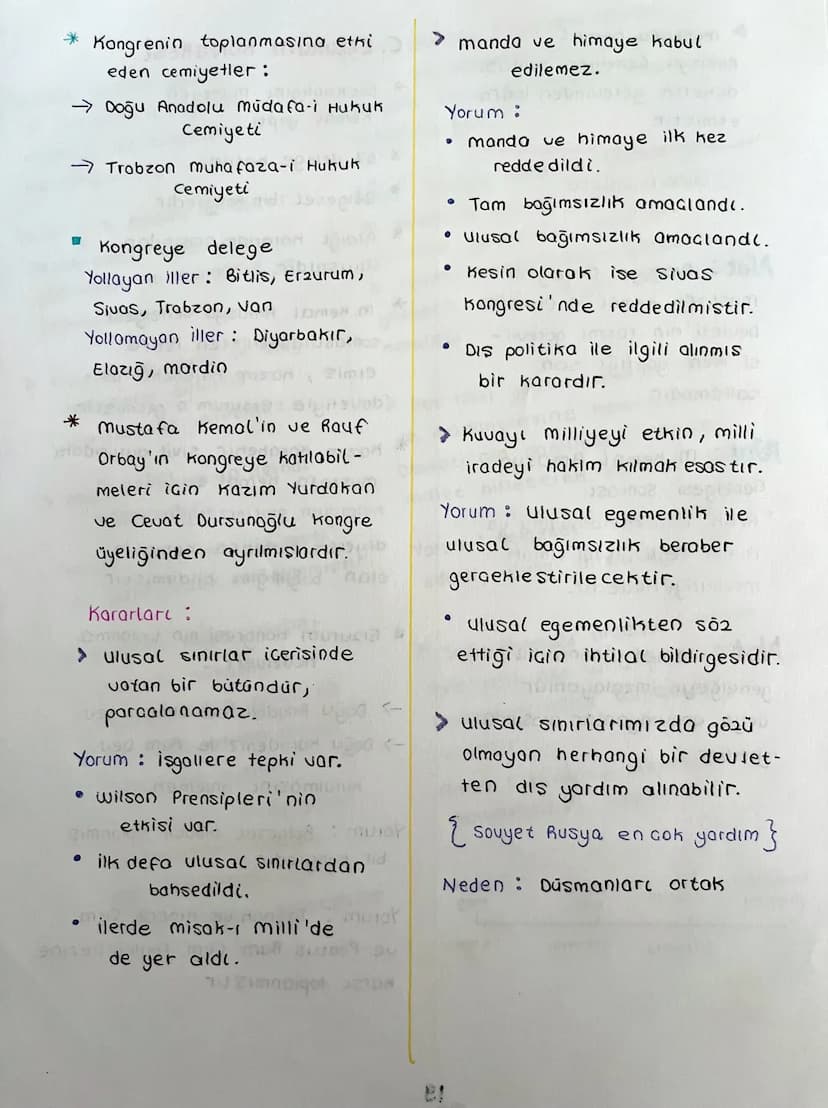 * Kongrenin toplanmasına etki
eden cemiyetler :
→ Doğu Anadolu Müdafa-i Hukuk
Cemiyeti
→ Trabzon muhafaza-i Hukuk
Cemiyeti
▪ Kongreye delege
Yollayan iller : Bitlis, Erzurum,
Sivas, Trabzon, Van
Yollamayan iller : Diyarbakır,
Elazığ, mardin
* Mustafa Kemal'in ve Rauf
Orbay'ın kongreye katılabil-
meleri icin Kazım Yurdakan
ve Cevat Dursunoğlu kongre
üyeliğinden ayrılmıslardır.
Kararları :
> ulusal sınırlar icerisinde
vatan bir bütündür,
parcalanamaz.
Yorum : isgallere tepki var.
• Wilson Prensipleri'nin
etkisi var.
• ilk defa ulusal sınırlardan
bahsedildi.
• ilerde misak-ı milli'de
de yer aldı.
> manda ve himaye kabul
edilemez.
Yorum :
• manda ve himaye ilk kez
reddedildi.
• Tam bağımsızlık amaclandı.
• ulusal bağımsızlık amaclandı.
• Kesin olarak ise Sivas
Kongresi'nde reddedilmistir.
• Dıs politika ile ilgili alınmıs
bir karardır.
> Kuvayı milliyeyi etkin, milli
iradeyi hakim kılmak esastır.
Yorum : ulusal egemenlik ile
ulusal bağımsızlık beraber
gerceklestirilecektir.
• ulusal egemenlikten söz
ettiği icin ihtilal bildirgesidir.
> ulusal sınırlarımızda gözü
olmayan herhangi bir devlet-
ten dıs yardım alınabilir.
{ Sovyet Rusya en cok yardım }
Neden : Düsmanları ortak